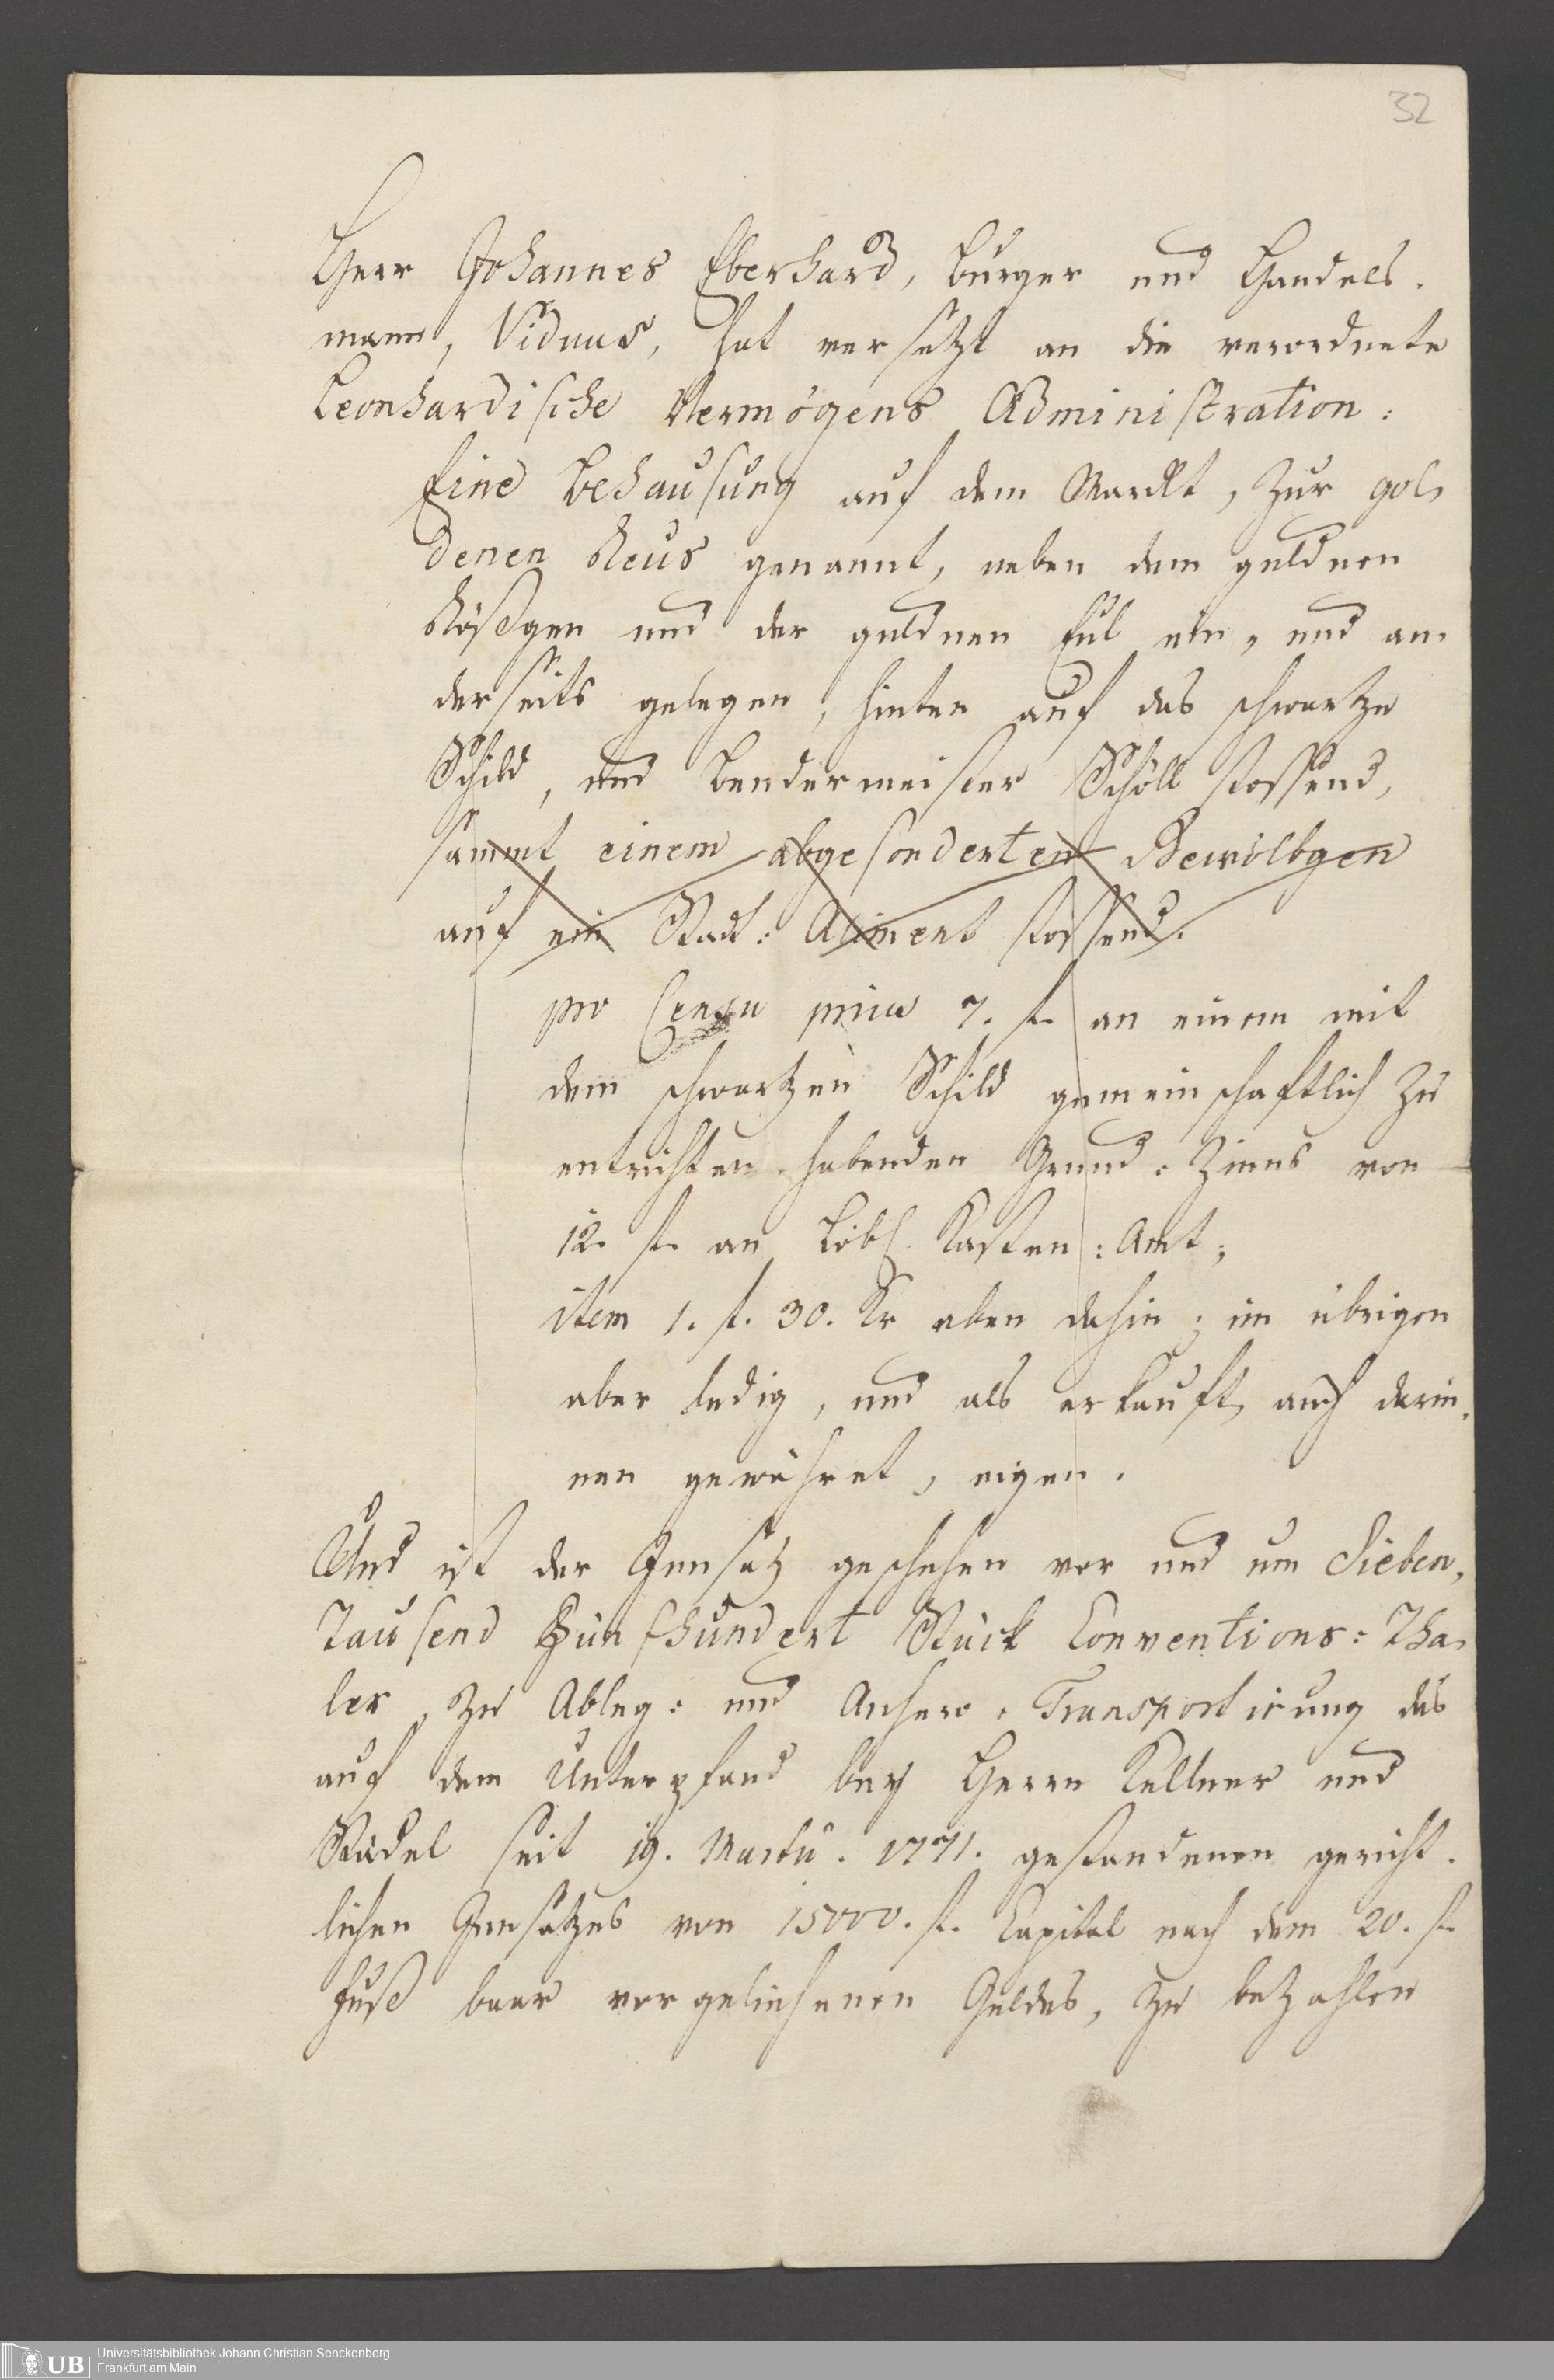 32
Herr Johannes Eberhard, Burger und Handels-
mann, Viduus, hat versetzt an die verordnete
Leonhardische Vermögens Administration:
Eine Behausung auf dem Marckt, zur gol-
denen Reus genannt, neben dem guldnen
Rößgen und der guldnen Eul ein- und an-
derseits gelegen, hinten auf das schwartze
Schild, und Bendermeister Schöll stossend,
sammt einem abgesonderten Gewölbgen
auf ein Stadt: Aliment stossend.
pro Censu prius 7. f. an einem mit
dem schwartzen Schild gemeinschaftlich zu
entrichten habenden Grund-Zinns von
12. f. an Löbl. Kasten: Amt,
item 1. f. 30. Kr eben dahin; im übrigen
aber ledig, und als erkauft, auch darin-
nen gewähret, eigen.
Und ist der Innsatz geschehen vor und um Sieben-
Tausend Fünfhundert Stück Conventions: Tha-
ler, zu Ableg: und Anhero-Transportirung des
auf dem Unterpfand bey Herrn Kellner und
Städel seit 19. Martii. 1771. gestandenen gericht-
lichen Innsatzes von 15000. f. Capital nach dem 20. f.
Fuß baar vorgeliehenen Geldes, zu bezahlen
UB
Universitätsbibliothek Johann Christian Senckenberg
Frankfurt am Main